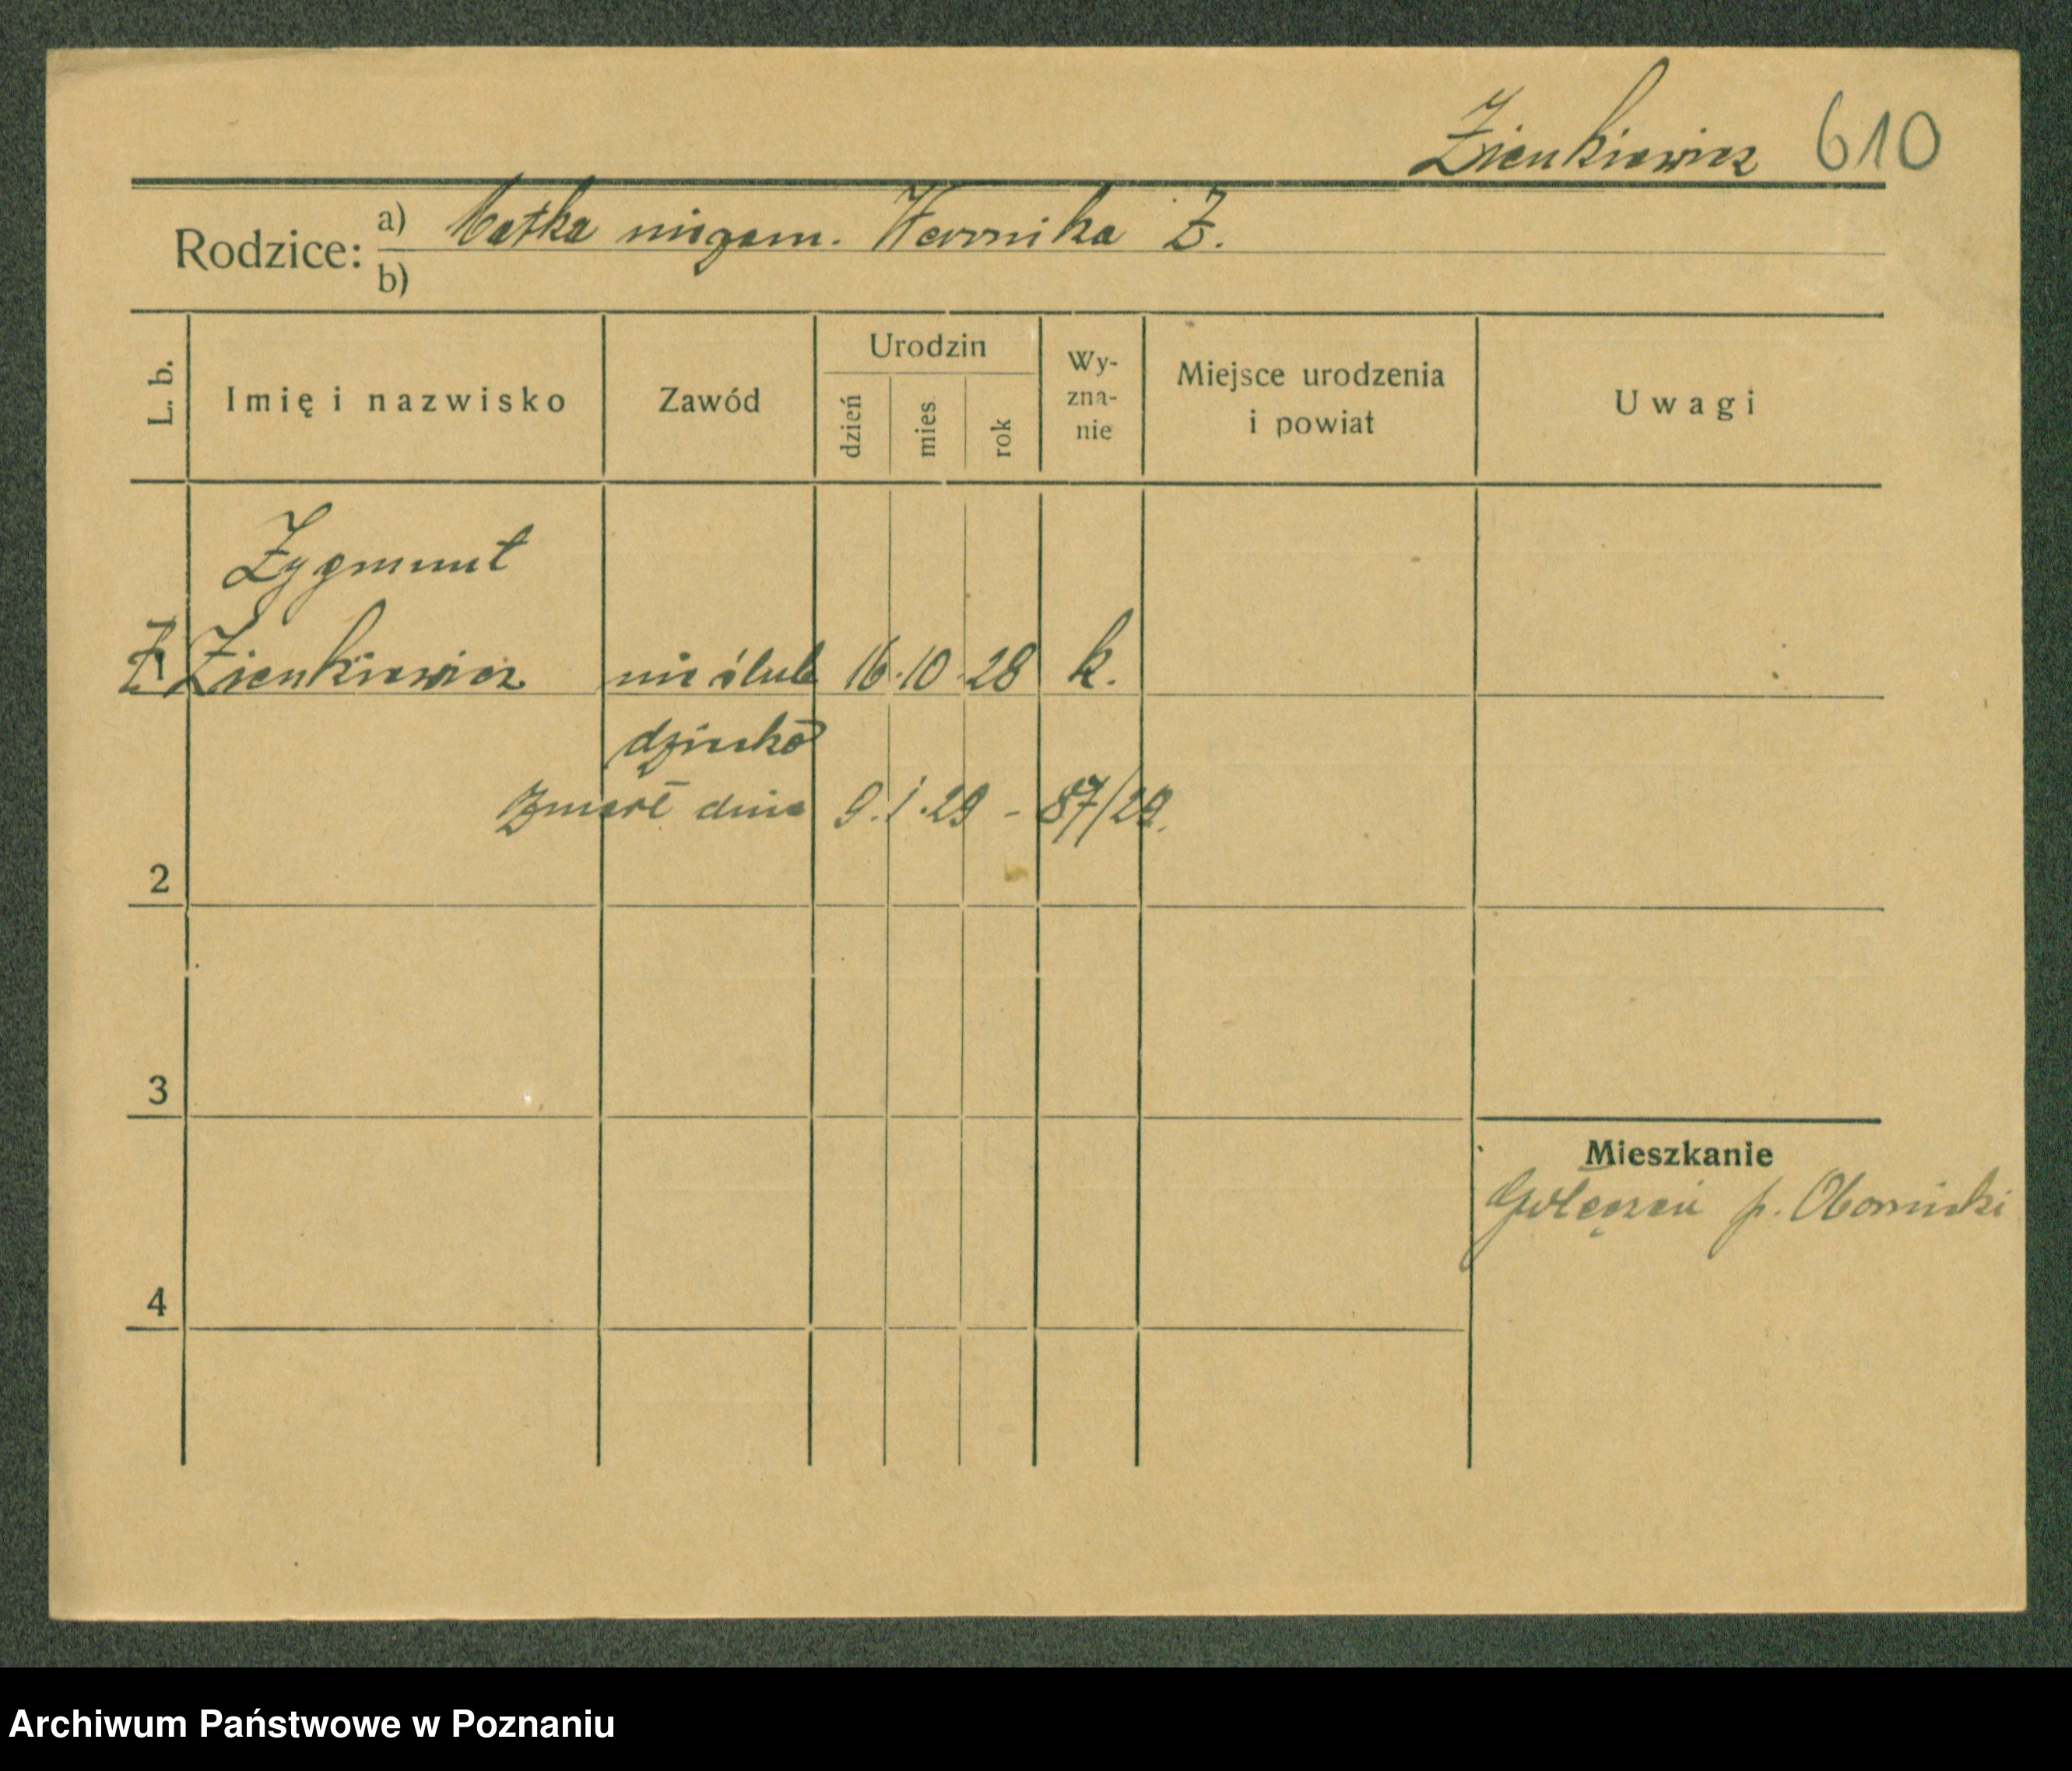 Zienkiewicz 610
Rodzice: a) Matka niezam. Weronika Z.
b)
L. b. Imię i nazwisko Zawód Urodzin dzień mies rok Wy-zna-nie Miejsce urodzenia i powiat Uwagi
Zygmunt
Z. 1 Zienkiewicz nieślub 16. 10. 28 k.
dziecko
Zmarł dnia 9. 1. 29 - 87/29.
2
3
Mieszkanie
p. Obornicki
4
Archiwum Państwowe w Poznaniu